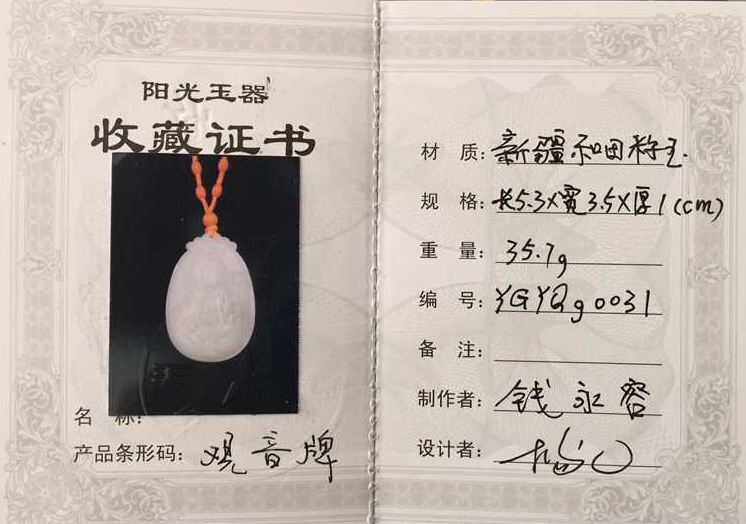 阳光玉器
收藏证书
名 称:
产品条形码: 观音牌
材 质: 新疆和田籽玉.
规 格: 长5.3X宽3.5X厚1(cm)
重 量: 35.7g
编 号: YGYQg0031
备 注:
制作者: 钱永容
设计者: